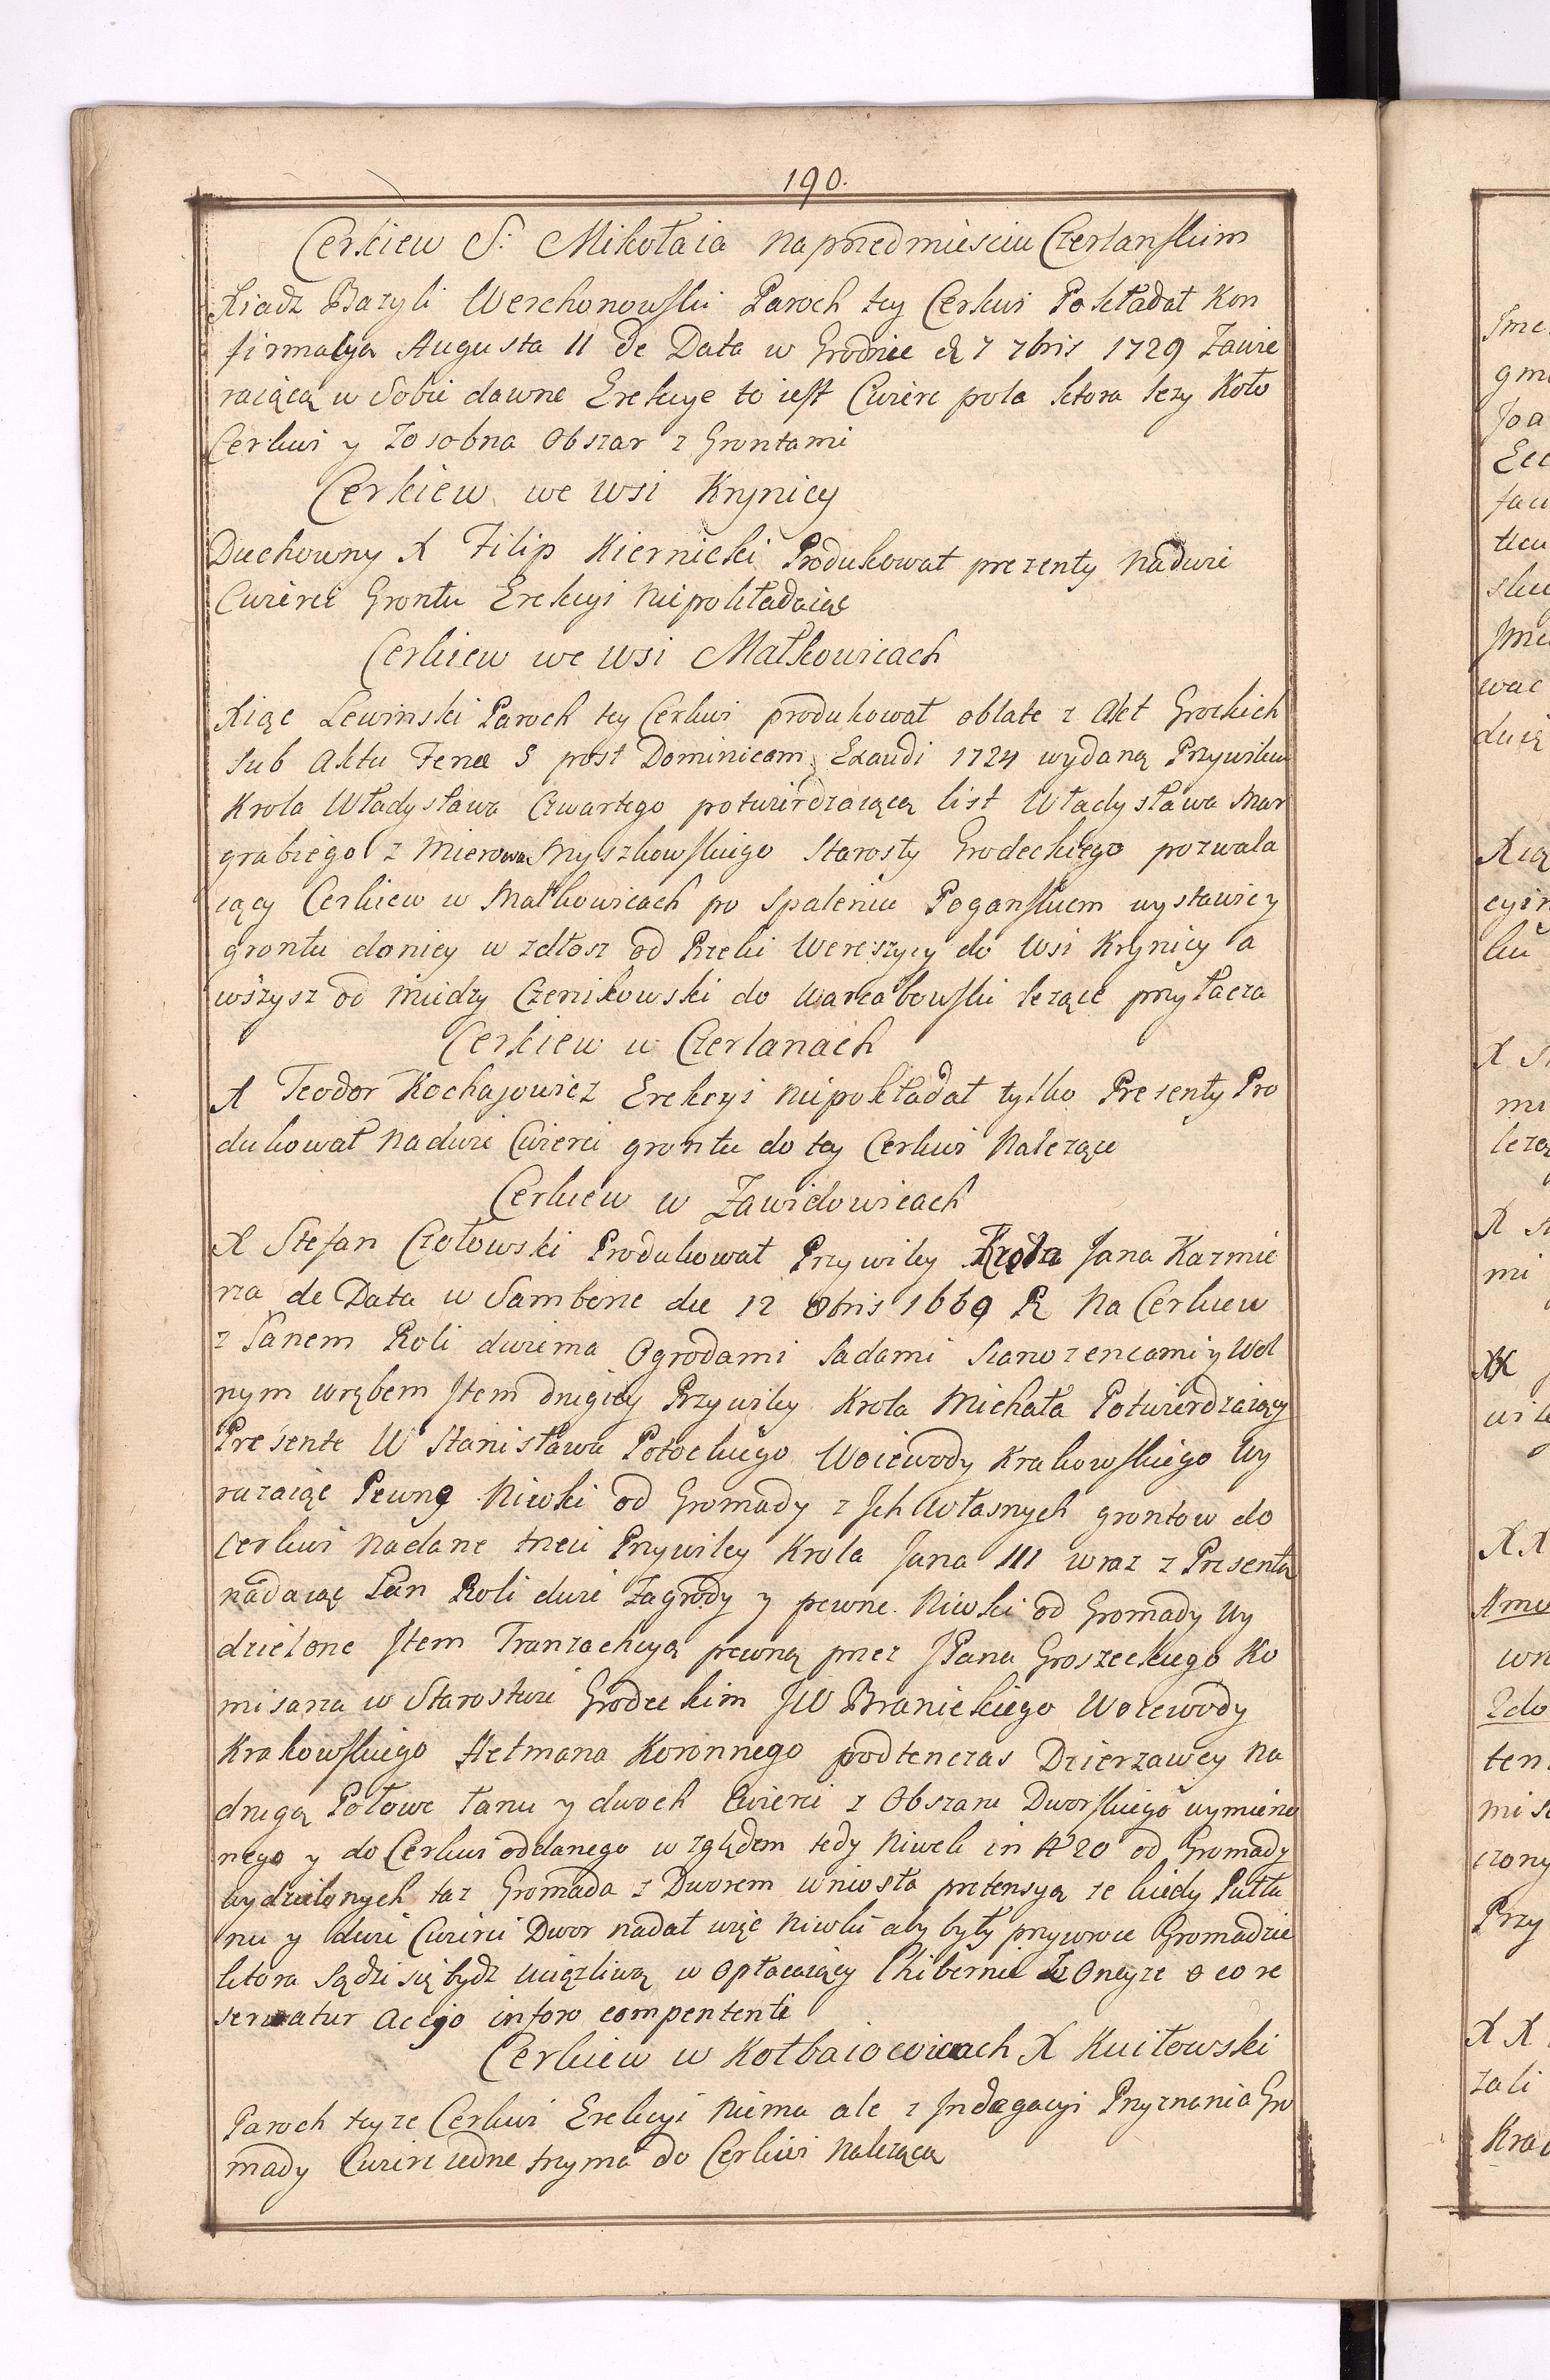 190.
Cerkiew S. Mikołaia na przedmieściu Czerlanskim
Xiadz Bazyli Werchonowski Paroch tey Cerkwi Pokładał Kon
firmacyą Augusta II de Data w Grodnie d 7 7bris 1729 Zawie
raiącą w Sobie dawne Erekcye to iest Cwierc pola ktora lezy Koło
Cerkwi y Zosobna Obszar z Grontami
Cerkiew we wsi Krynicy
Duchowny X Filip Kiernicki Produkował prezenty na dwie
Cwierci Grontu Erekcyi niepokładaiąc
Cerkiew we wsi Małkowicach
Xiąc Lewinski Paroch tey Cerkwi produkował oblate z Akt Grockich
sub Aktu Feria 5 post Dominicam Exaudi 1724 wydaną Przywileiu
Krola Władysława Czwartego potwierdzaiącą list Władysława Mar
grabiego z Mierowa Myszkowskiego Starosty Grodeckiego pozwala
iący Cerkiew w Małkowicach po Spaleniu Poganskiem wystawic y
grontu do niey w zdłosz od Rzeki Wereszycy do Wsi Krynicy a
wszysz od miedzy Czenikowski do Warcabowski lezące przyłacza
Cerkiew w Czerlanach
X Teodor Kochajowicz Erekcyi niepokładał tylko Presenty Pro
dukował na dwie Cwierci grontu do tey Cerkwi Nalezące
Cerkiew w Zawidowicach
X Stefan Czołowski Produkował Przywiley Krola Jana Kazmie
rza de Data w Samborze die 12 8bris 1669 R Na Cerkiew
z Łanem Roli dwiema Ogrodami Sadami Sianozencami y Wol
nym wrębem Jtem drugiey Przywiley Krola Michała Potwierdzaiący
Presente W Stanisława Potockiego Woiewody Krakowskiego Wy
razaiąc Pewne Niwki od Gromady z Jch Własnych grontow do
Cerkwi nadane trzeci Przywiley Krola Jana III wraz z Presentą
nadaiąc Łan Roli dwie Zagrody y pewne Niwki od Gromady Wy
dzielone Jtem Tranzakcyą pewną przez JPana Groszeckiego Ko
misarza w Starostwie Grodeckim JW Branickiego Woiewody
Krakowskiego Hetmana Koronnego podtenczas Dzierzawcy na
drugą Połowe łanu y dwoch Cwierci z Obszaru Dworskiego wymienio
nego y do Cerkwi oddanego względem tedy Niwek in N 20 od Gromady
wydzielonych taz Gromada z Dworem wniosła pretensyą ze kiedy Pułła
nu y dwie Cwierci Dwor nadał więc niwki aby były przywroc Gromadzie
ktora Sądzi się bydz uciązliwą w Opłacaiący Chiberni w Oneyze o co re
servatur accyo in foro compententi
Cerkiew w Kołbaiowicach X Kuiłowski
Paroch teyze Cerkwi Erekcyi niema ale z Jndagacyi Przyznania Gro
mady Cwierc iedne trzyma do Cerkwi nalezącą